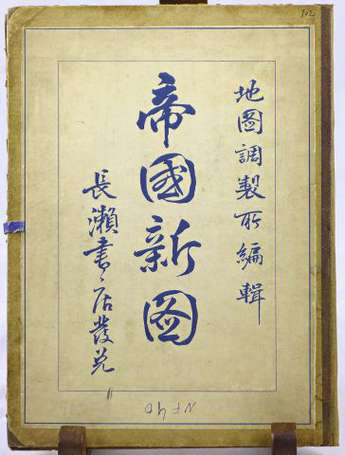 地圖調製所編輯
帝國新圖
長瀨書店發兌